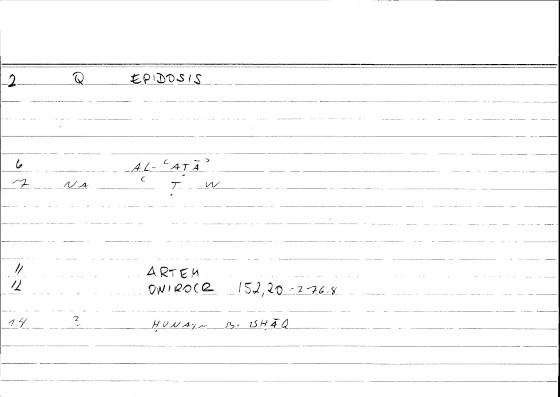 2 Q EPIDOSIS
6 AL-ʿAṬĀʾ
7 NA ʿ Ṭ W
11 ARTEM
12 ONIROCR 152,20 - 276.8
14 ? ḤUNAYN B. ISḤĀQ